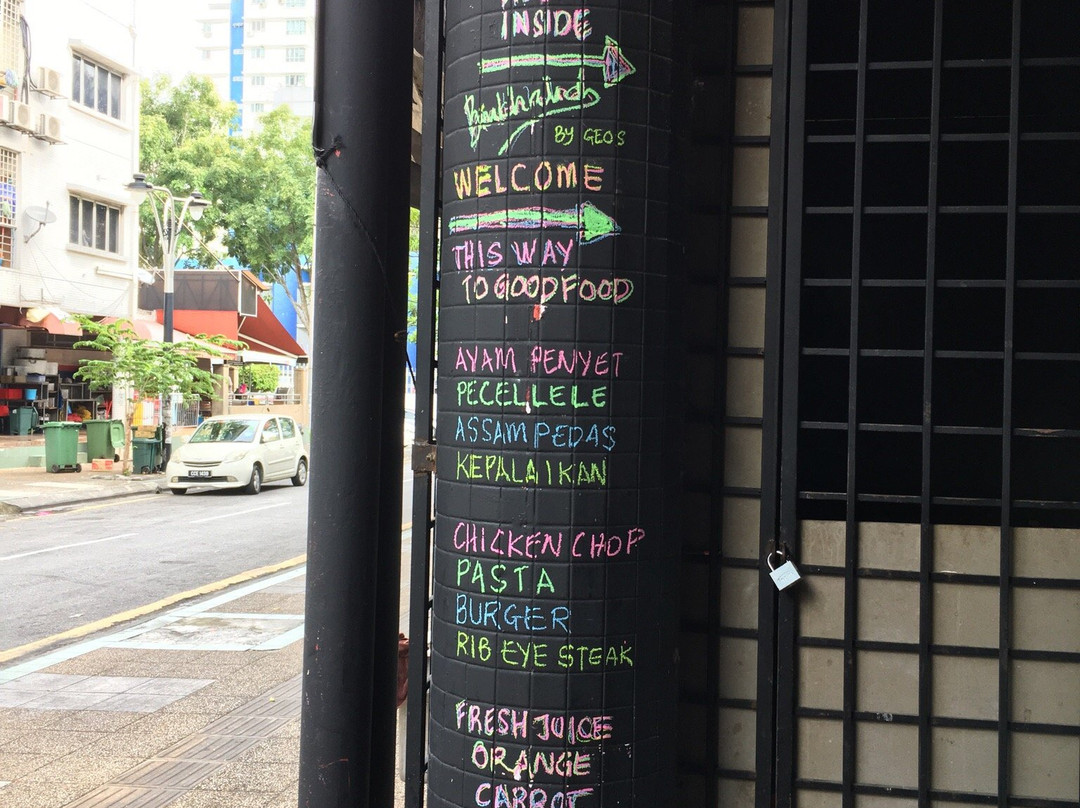 INSIDE
BY GEOS
WELCOME
THIS WAY
TO GOOD FOOD
AYAM PENYET
PECEL LELE
ASSAM PEDAS
KEPALA IKAN
CHICKEN CHOP
PASTA
BURGER
RIB EYE STEAK
FRESH JUICE
ORANGE
CARROT